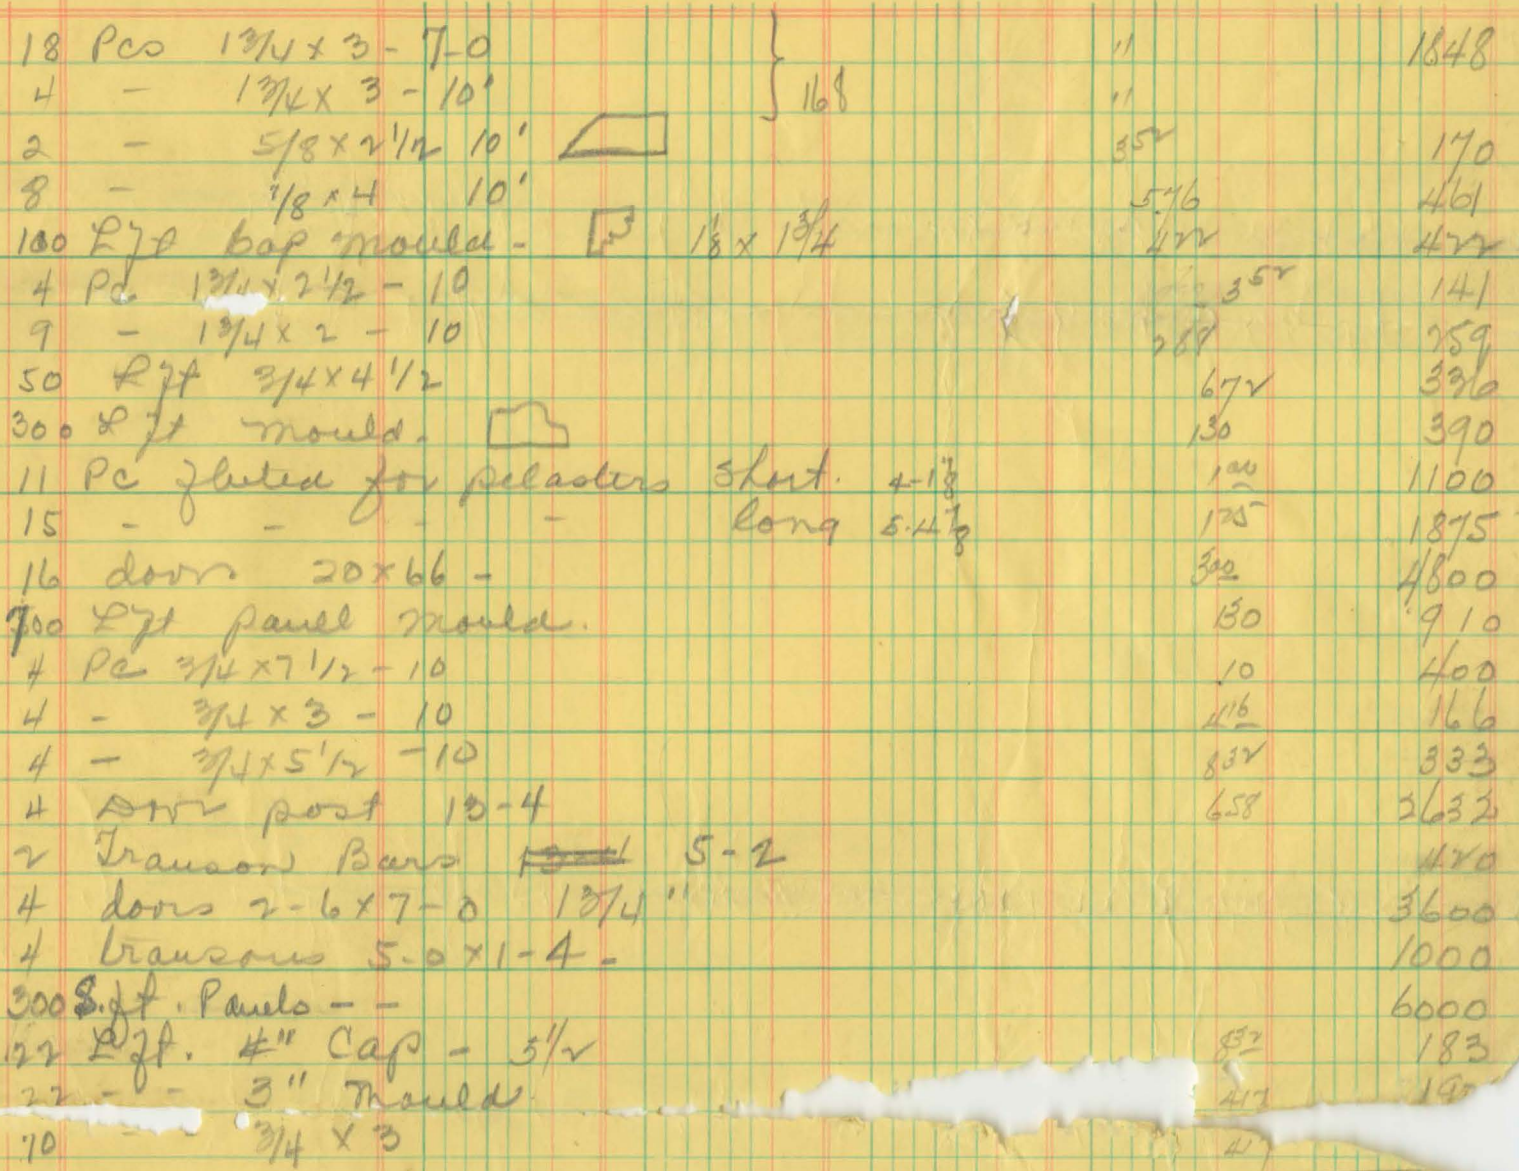 18 Pcs 1 3/4 x 3 - 7-0 " 1848
4 - 1 3/4 x 3 - 10' 168 "
2 - 5/8 x 2 1/2 10' 352 170
8 - 7/8 x 4 10' 576 461
100 Lft bap mould - 1 1/8 x 1 3/4 422 422
4 Pc 1 3/4 x 2 1/2 - 10 352 141
9 - 1 3/4 x 2 - 10 288 259
50 Lft 3/4 x 4 1/2 672 336
300 Lft mould - 130 390
11 Pc fluted for pelasters short. 4-1 1/8 100 1100
15 - - - - long 5-4 7/8 125 1875
16 doors 20 x 66 - 300 4800
700 Lft panell mould. 130 910
4 Pc 3/4 x 7 1/2 - 10 .10 400
4 - 3/4 x 3 - 10 416 166
4 - 3/4 x 5 1/2 - 10 832 333
4 Door post 13-4 658 2632
2 Transom Bars 5-2 420
4 doors 2-6 x 7-0 1 3/4" 3600
4 transoms 5-0 x 1-4 - 1000
300 S.ft. Panels - - 6000
22 Lft. 4" Cap - 5 1/2 832 183
22 - - 3" Mould 417
70 - - 3/4 x 3 417